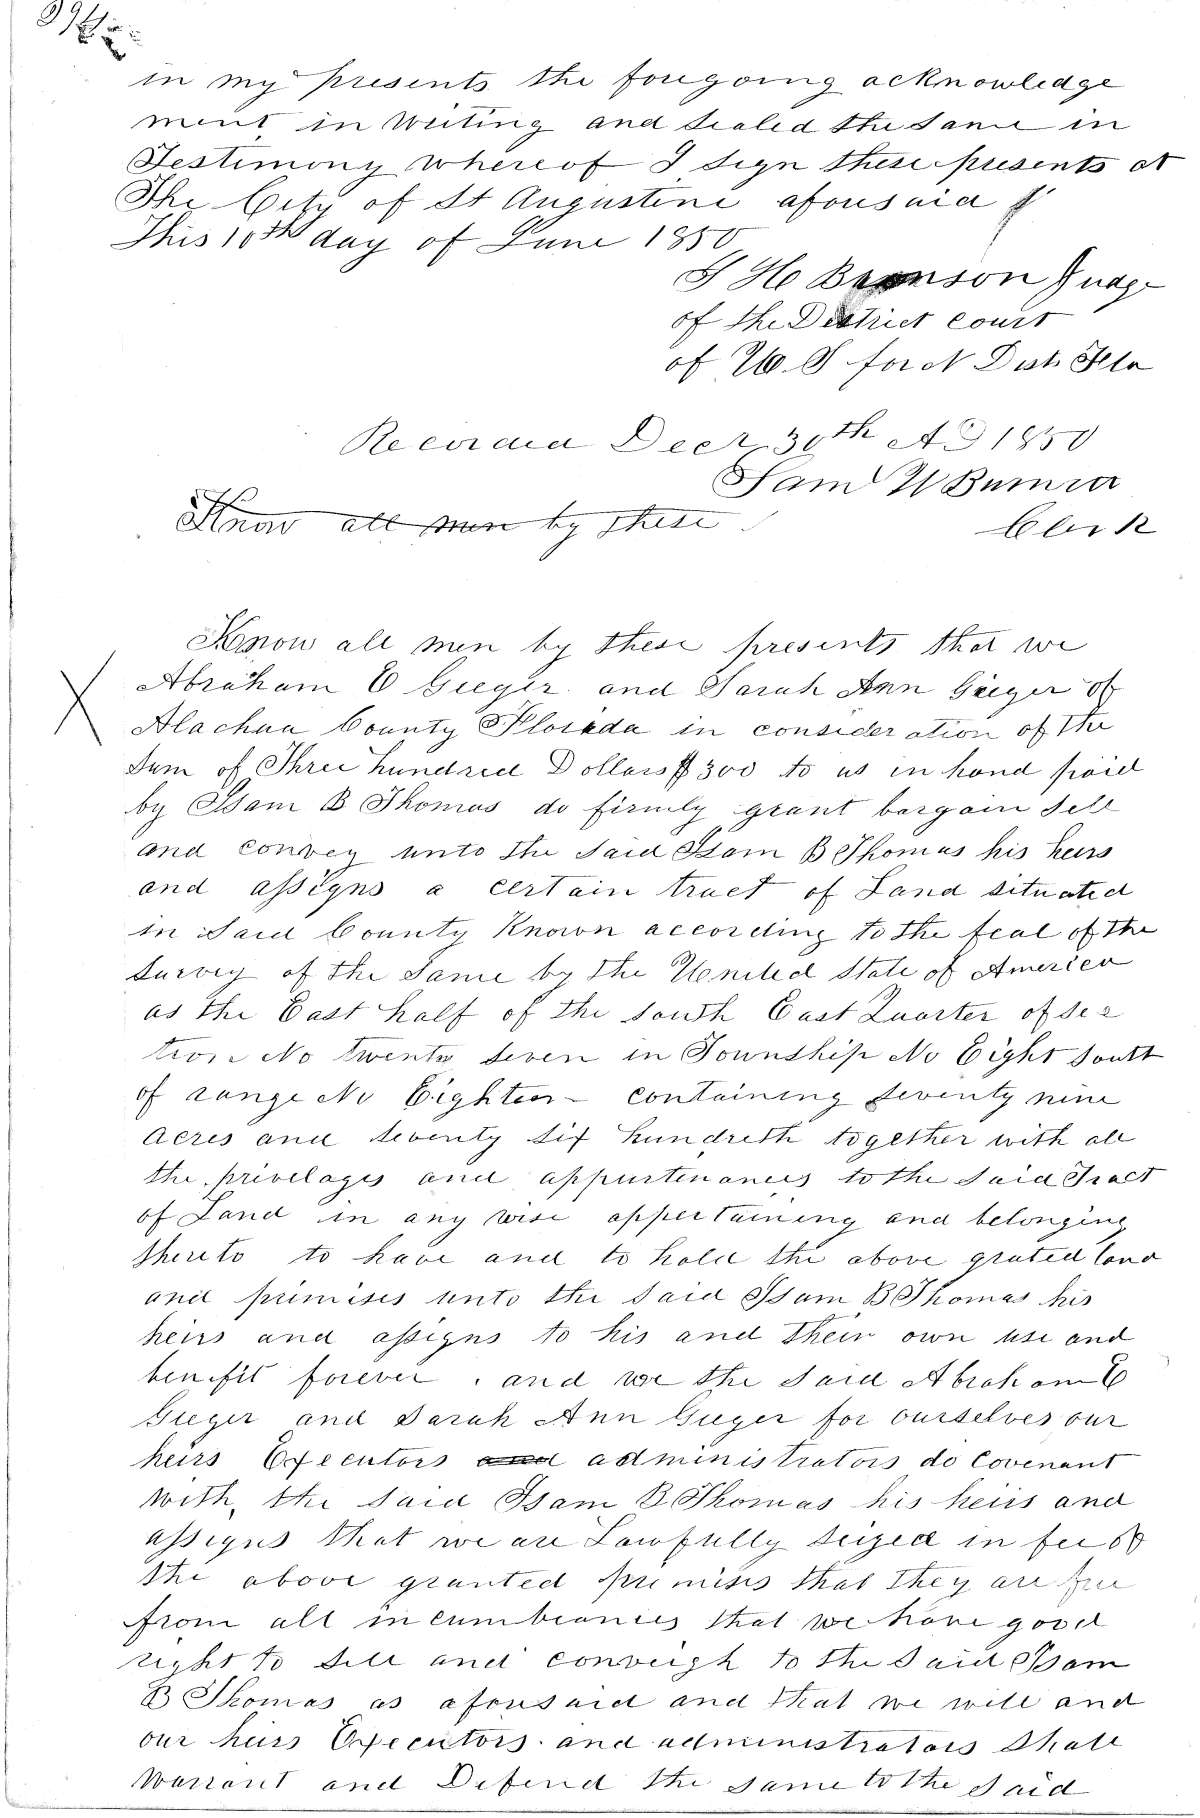 in my presents the forgoing acknowledge
ment in Writing and Sealed the Same in
Testimony whereof I Sign these presents at
The City of St Augustine aforesaid
This 10th day of June 1850
H Bronson Judge
of the District court
of U.S for N Dist Fla
Recorded Decr 30th AD 1850
Saml
Clerk
Know all men by these
Know all men by these presents that we
Abraham C Gieger and Sarah Ann Gieger of
Alachua County Florida in consideration of the
Sum of Three hundred Dollars $300 to us in hand paid
by Isam B Thomas do firmly grant bargain Sell
and convey unto the Said Isam B Thomas his heirs
and assigns a certain tract of Land situated
in Said County Known according to the feal of the
Survey of the Same by the United State of America
as the East half of the South East Quarter of Sec
tion No twenty Seven in Township No Eight South
of range No Eighteen containing Seventy nine
Acres and Seventy Six hundreth together with all
the privelages and appurtenances to the Said Tract
of Land in any wise appertaining and belonging
thereto to have and to hold the above grated land
and primises unto the Said Isam B Thomas his
heirs and assigns to his and their own use and
benifit forever . and we the Said Abraham C
Gieger and Sarah Ann Gieger for ourselves our
heirs Executors and administrators do Covenant
with the Said Isam B Thomas his heirs and
assigns that we are Lawfully Seized in fee of
the above granted primises that they are free
from all incumbrances that we have good
right to Sell and conveigh to the Said Isam
B Thomas as aforesaid and that we will and
our heirs Executors and administrators Shall
Warrant and Defend the same to the Said